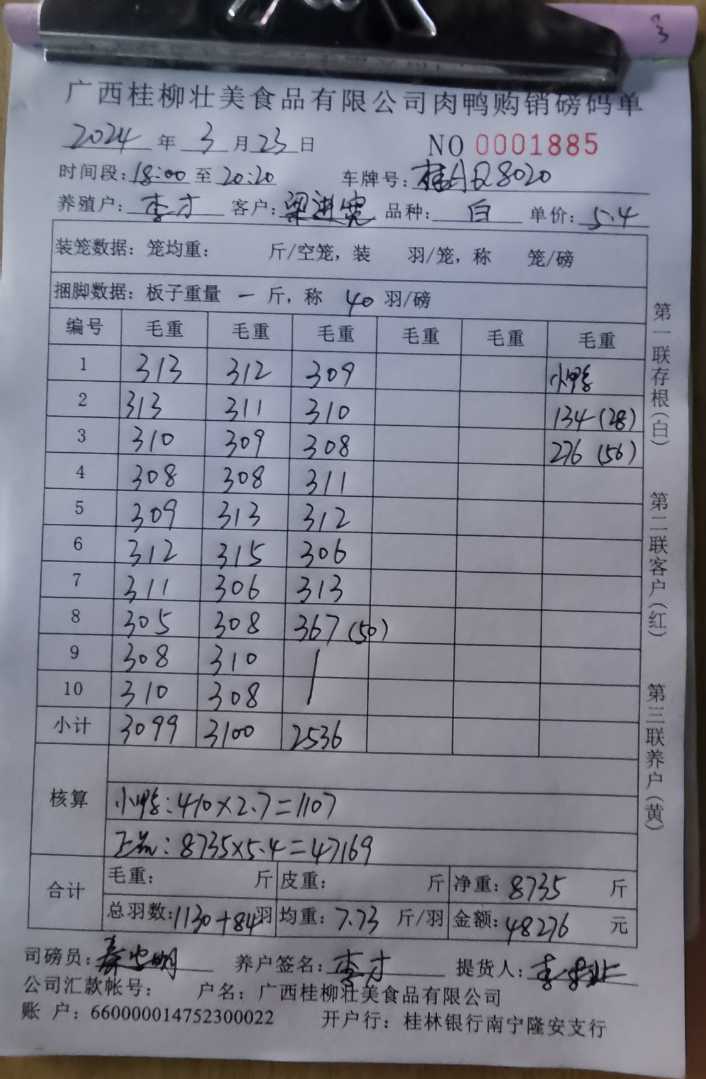 3
广西桂柳壮美食品有限公司肉鸭购销磅码单
2024 年 3 月 23 日 NO 0001885
时间段: 18:00 至 20:20 车牌号: 桂AQ8020
养殖户: 李才 客户: 梁进宽 品种: 白 单价: 5.4
装笼数据: 笼均重: 斤/空笼, 装 羽/笼, 称 笼/磅
捆脚数据: 板子重量 一 斤, 称 40 羽/磅
编号 毛重 毛重 毛重 毛重 毛重 毛重
1 313 312 309 小鸭
2 313 311 310 134(28)
3 310 309 308 276(56)
4 308 308 311
5 309 313 312
6 312 315 306
7 311 306 313
8 305 308 367(50)
9 308 310
10 310 308
小计 3099 3100 2536
核算
小鸭:410×2.7=1107
正品:8735×5.4=47169
合计
毛重: 斤 皮重: 斤 净重: 8735 斤
总羽数: 1130+84 羽 均重: 7.73 斤/羽 金额: 48276 元
司磅员: 养户签名: 李才 提货人:
公司汇款帐号: 户名: 广西桂柳壮美食品有限公司
账 户: 660000014752300022 开户行: 桂林银行南宁隆安支行
第一联存根(白)
第二联客户(红)
第三联养户(黄)